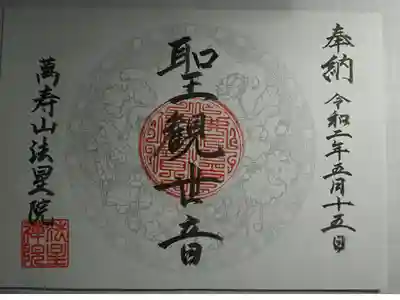 奉納 令和二年五月十五日
聖観世音
萬寿山法星院